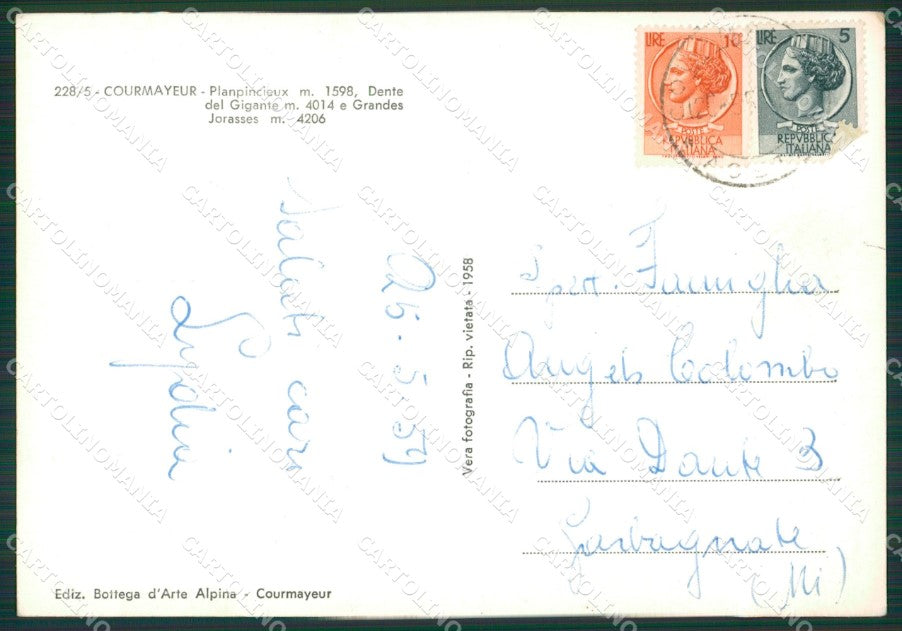 228/5 - COURMAYEUR - Planpincieux m. 1598, Dente
del Gigante m. 4014 e Grandes
Jorasses m. 4206
LIRE 10
POSTE
REPVBBLICA
ITALIANA
LIRE 5
POSTE
REPVBBLIC
ITALIANA
AOSTA
26 - 5 - 59
saluti cari
Vera fotografia - Rip. vietata - 1958
Spett. Famiglia
Angelo Colombo
Via Dante 3
Garbagnate
(Mi)
Ediz. Bottega d'Arte Alpina - Courmayeur
CARTOLINOMANIA